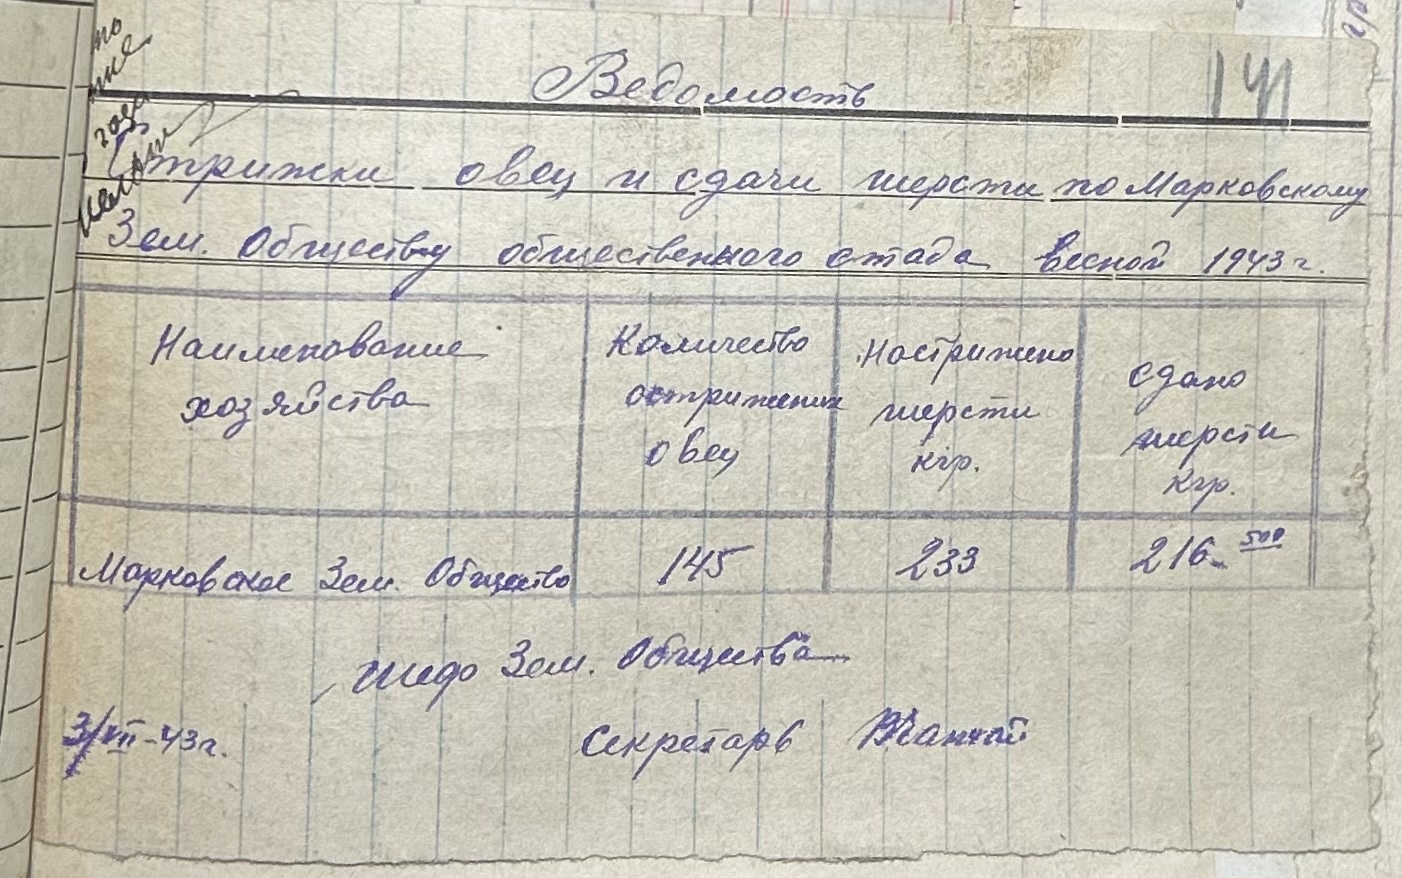 Ведомость
141
Стрижки овец и сдачи шерсти по Марковскому
Зем. Обществу общественного стада весной 1943 г.
Наименование
хозяйства
Количество
остриженых
овец
Настрижено
шерсти
кгр.
Сдано
шерсти
кгр.
Марковское Зем. Общество
145
233
216 500
Зем. Общества
3/VII-43 г.
Секретарь